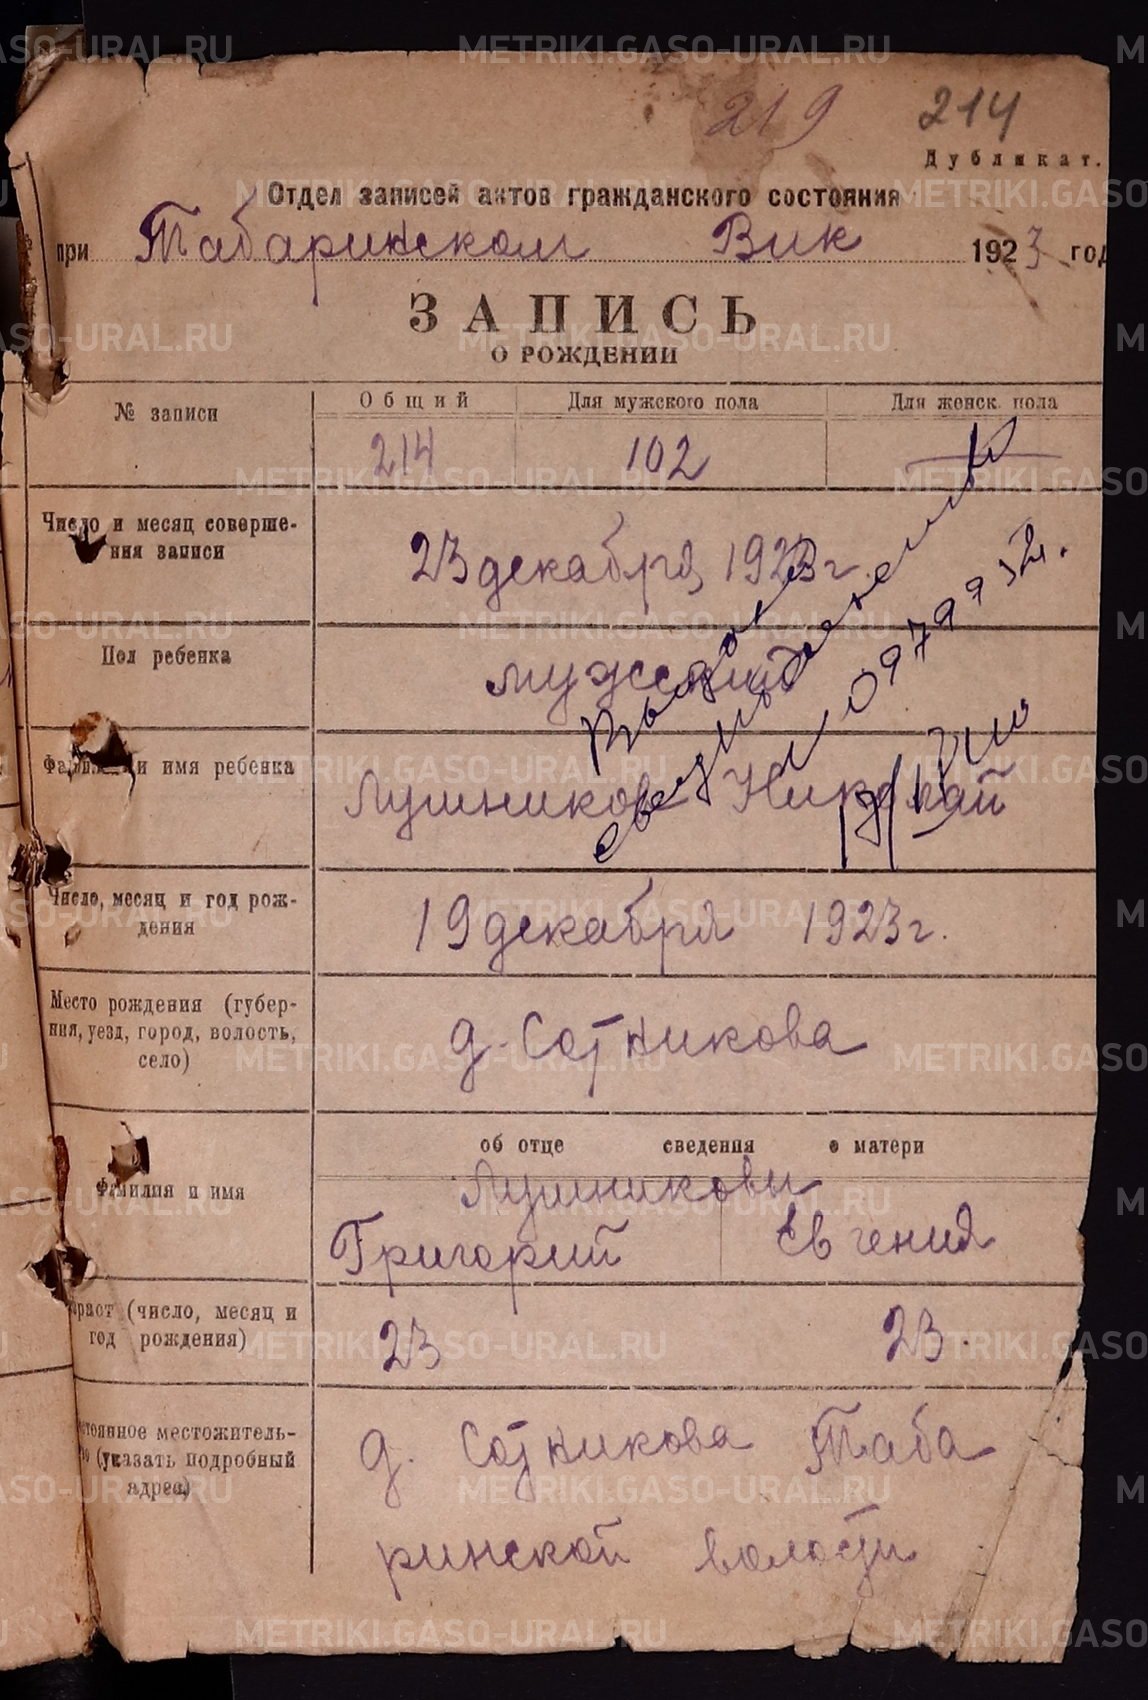 219
214
Дубликат.
Отдел записей актов гражданского состояния
при Табаринском Вик 1923 год
ЗАПИСЬ
О РОЖДЕНИИ
№ записи
Общий
Для мужского пола
Для женск. пола
214
102
Число и месяц соверше-
ния записи
23 декабря 1923 г.
Пол ребенка
мужской
Фамилия и имя ребенка
Лушников Николай
Выдано
свидетельство
Число, месяц и год рож-
дения
19 декабря 1923 г.
Место рождения (губер-
ния, уезд, город, волость,
село)
д. Сотникова
об отце сведения о матери
Фамилия и имя
Лушниковы
Григорий
Евгения
раст (число, месяц и
год рождения)
23
23.
тоянное местожитель-
о (указать подробный
адрес)
д. Сотникова Таба
ринской волости
METRIKI.GASO-URAL.RU